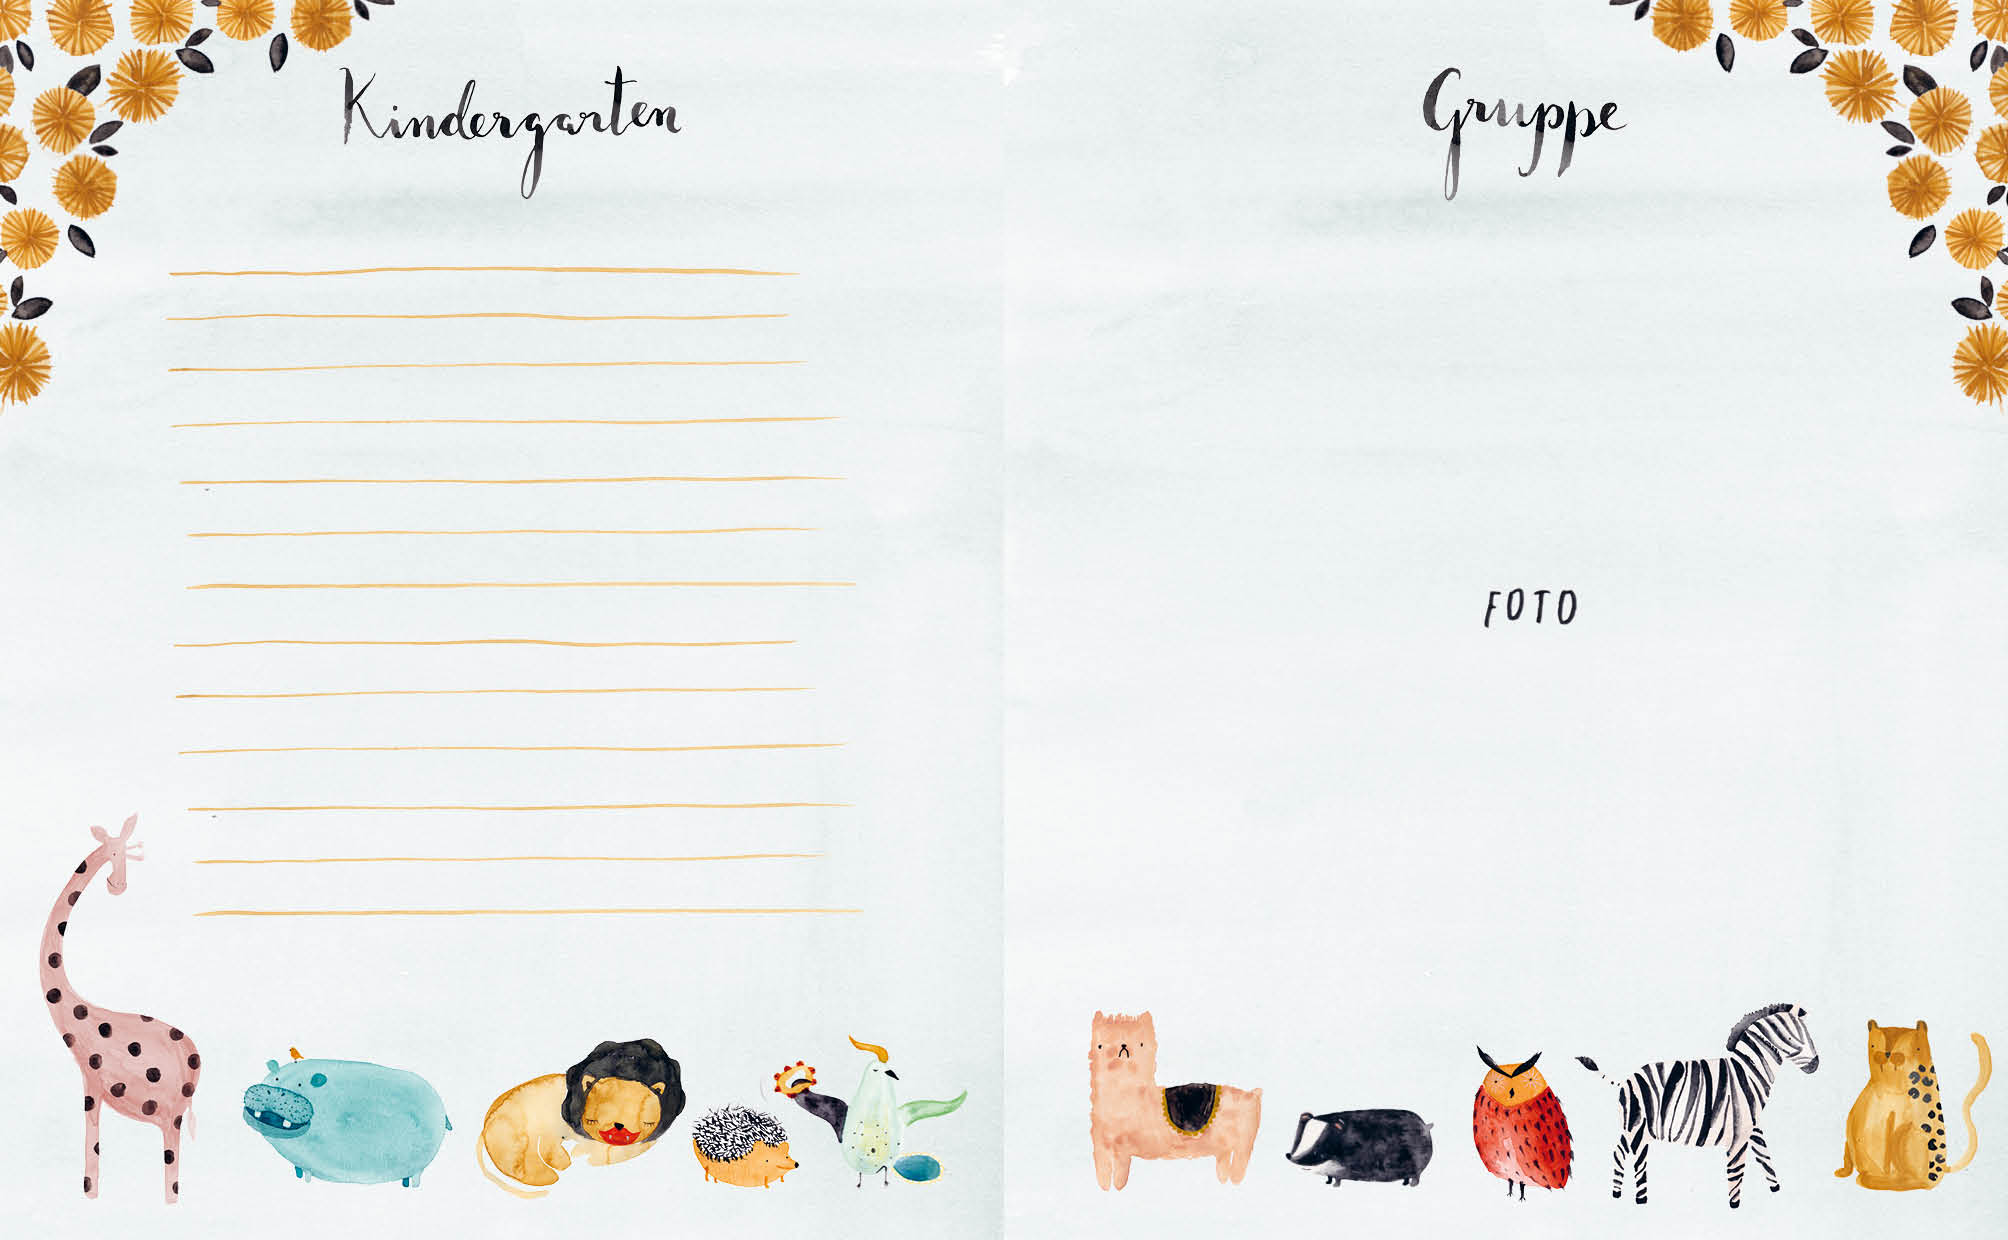 Kindergarten
Gruppe
FOTO